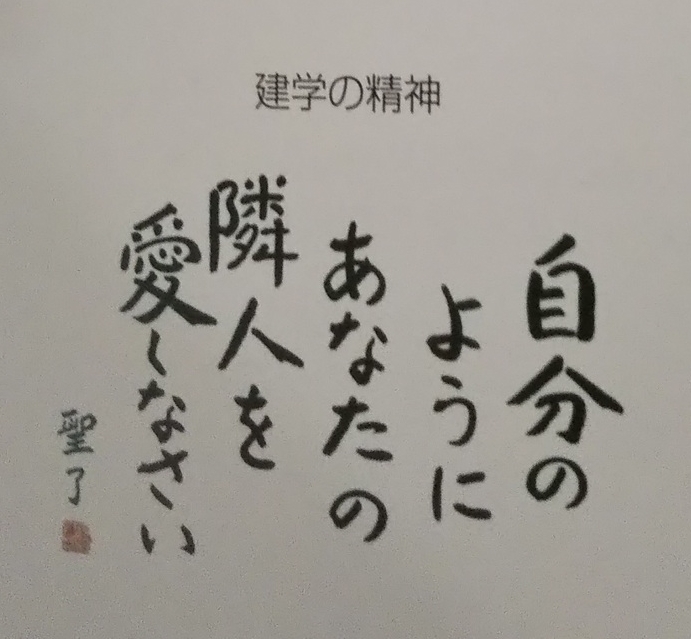 建学の精神
自分の
ように
あなたの
隣人を
愛しなさい
聖了